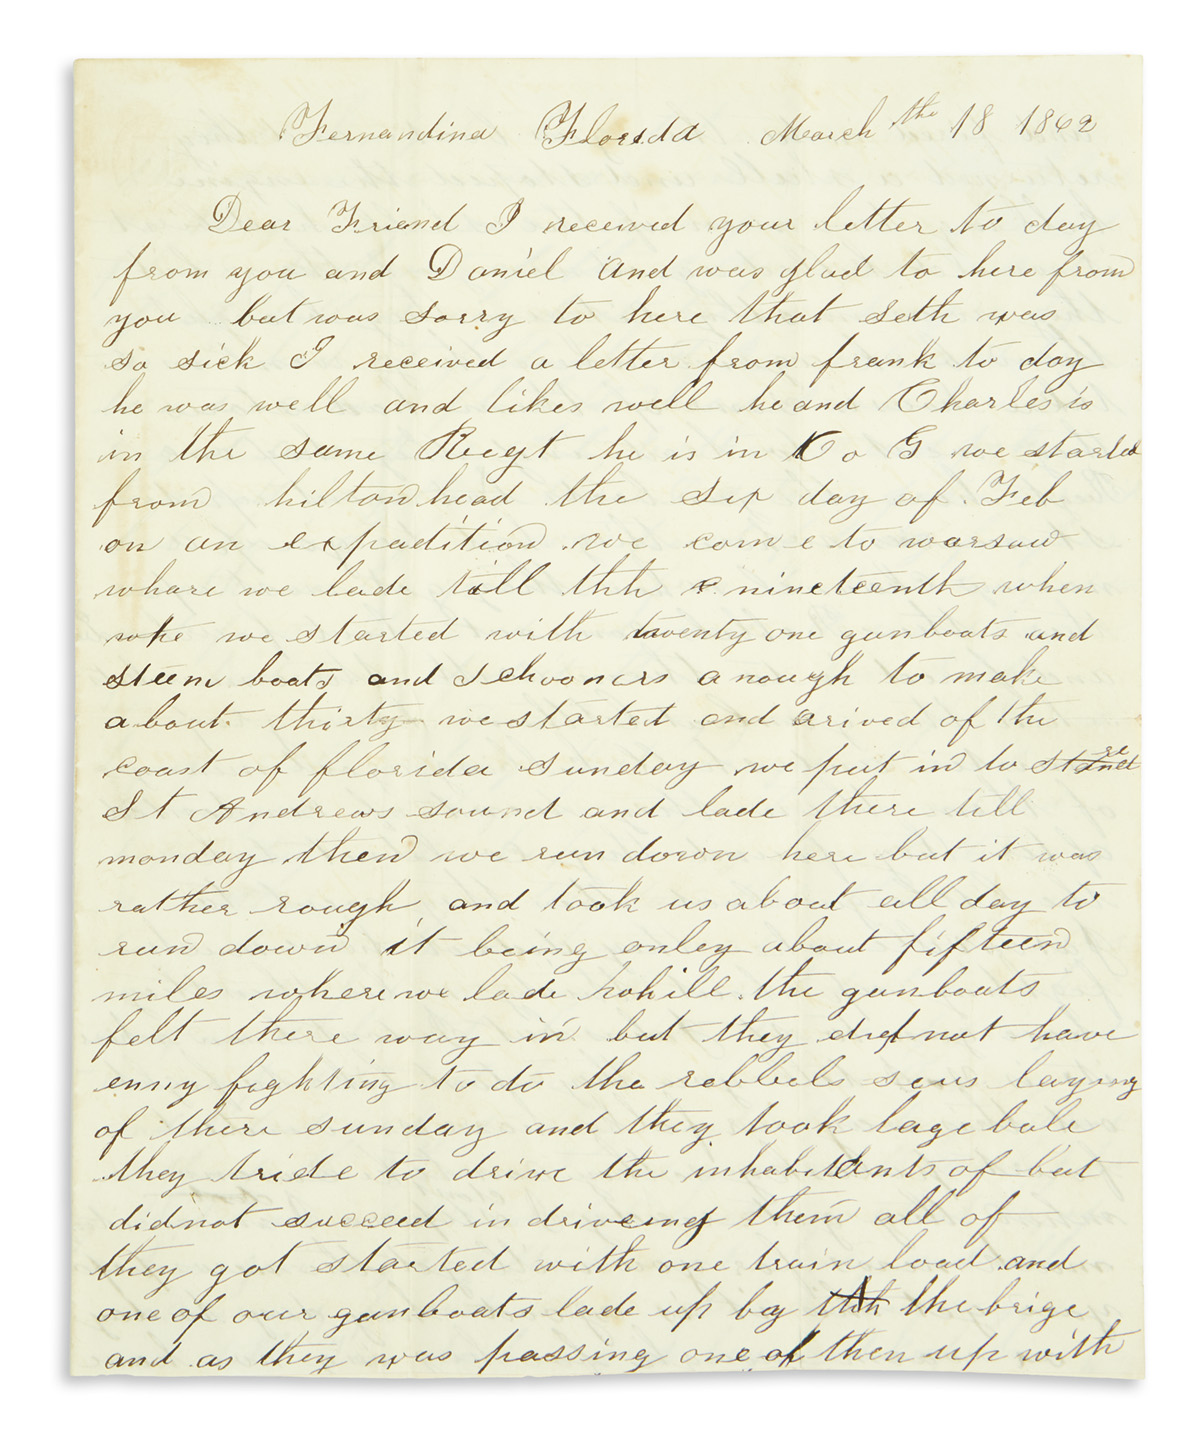 Fernandina Florida March the 18 1862
Dear Friend I received your letter to day
from you and Daniel And was glad to here from
you but was sorry to here that Seth was
so sick I received a letter from frank to day
he was well and likes well he and Charles is
in the same Reegt he is in Co G we started
from hilton head the Six day of Feb
on an expadition we come to warsaw
whare we lade till thh nineteenth when
we started with twenty one gunboats and
steem boats and Schooners anough to make
about thirty we started and arived of the
coast of florida sunday we put in to
St Andrews sound and lade there till
monday then we run down here but it was
rather rough and took us about all day to
run down it being onley about fifteen
miles where we lade hohill the gunboats
felt there way in but they did not have
enny fighting to do the rebbels seus laying
of there sunday and they took lage bale
they tride to drive the inhabitants of but
did not succeed in driveing them all of
they got started with one train load and
one of our gunboats lade up by the brige
and as they was passing one of then up with